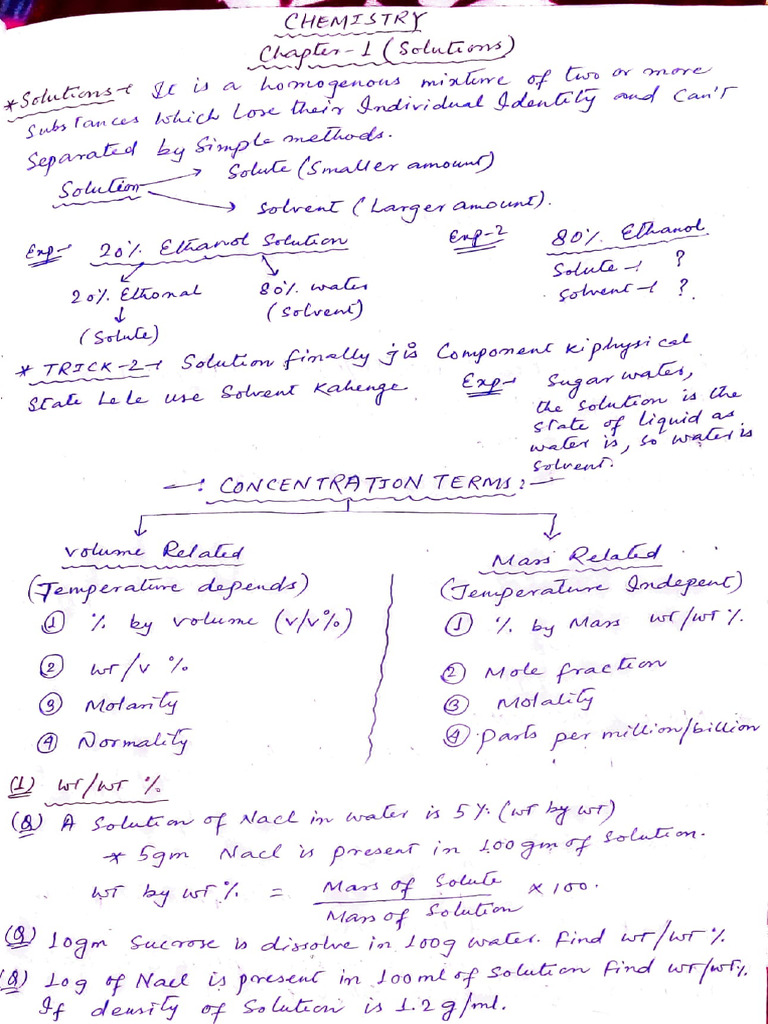 CHEMISTRY
Chapter-1 (Solutions)
*Solutions → It is a homogenous mixture of two or more
Substances which Lose their Individual Identity and Can't
Separated by Simple methods.
Solution → Solute (Smaller amount)
→ Solvent (Larger amount).
Exp- 20% Ethanol Solution
20% Ethonal 80% water
(Solute) (Solvent)
Exp-2 80% Ethanol
Solute → ?
Solvent → ?
* TRICK-2 → Solution finally jis Component ki physical
State le le use Solvent Kahenge
Exp→ Sugar water,
the Solution is the
State of liquid as
water is, so water is
Solvent.
—: CONCENTRATION TERMS :—
Volume Related
(Temperature depends)
① % by volume (v/v%)
② wt/v %
③ Molarity
④ Normality
Mass Related
(Temperature Indepent)
① % by Mass wt/wt %.
② Mole fraction
③ Molality
④ Parts per million/billion
(1) wt/wt %
(Q) A Solution of Nacl in water is 5% (wt by wt)
* 5gm Nacl is present in 100gm of Solution.
wt by wt % = Mass of Solute / Mass of Solution × 100.
(Q) 10gm Sucrose is dissolve in 100g water. Find wt/wt %
(Q) 10g of Nacl is present in 100ml of Solution find wt/wt%
If density of Solution is 1.2 g/ml.